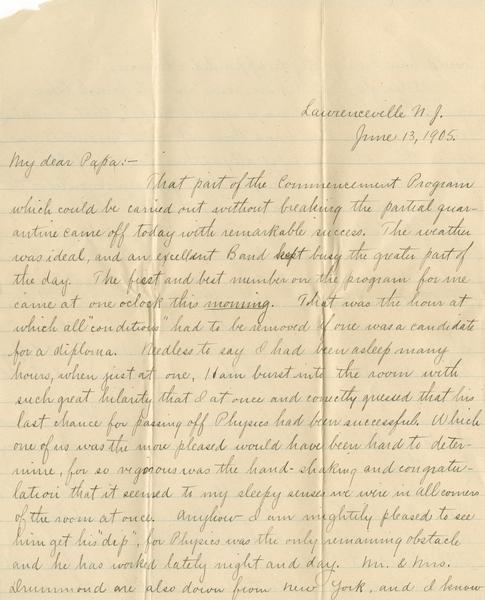 Lawrenceville N. J.
June 13, 1905.
My dear Papa:-
That part of the Commencement Program
which could be carried out without breaking the partial quar-
antine came off today with remarkable success. The weather
was ideal, and an excellent Band kept busy the greater part of
the day. The first and best number on the program for me
came at one oclock this morning. That was the hour at
which all "conditions" had to be removed if one was a candidate
for a diploma. Needless to say I had been asleep many
hours, when just at one, Ham burst into the room with
such great hilarity that I at once and correctly guessed that his
last chance for passing off Physics had been successful. Which
one of us was the more pleased would have been hard to deter-
mine, for so vigorous was the hand-shaking and congratu-
lation that it seemed to my sleepy senses we were in all corners
of the room at once. Anyhow I am mightily pleased to see
him get his "dip", for Physics was the only remaining obstacle
and he has worked lately night and day. Mr. & Mrs.
Drummond are also down from New York, and I know